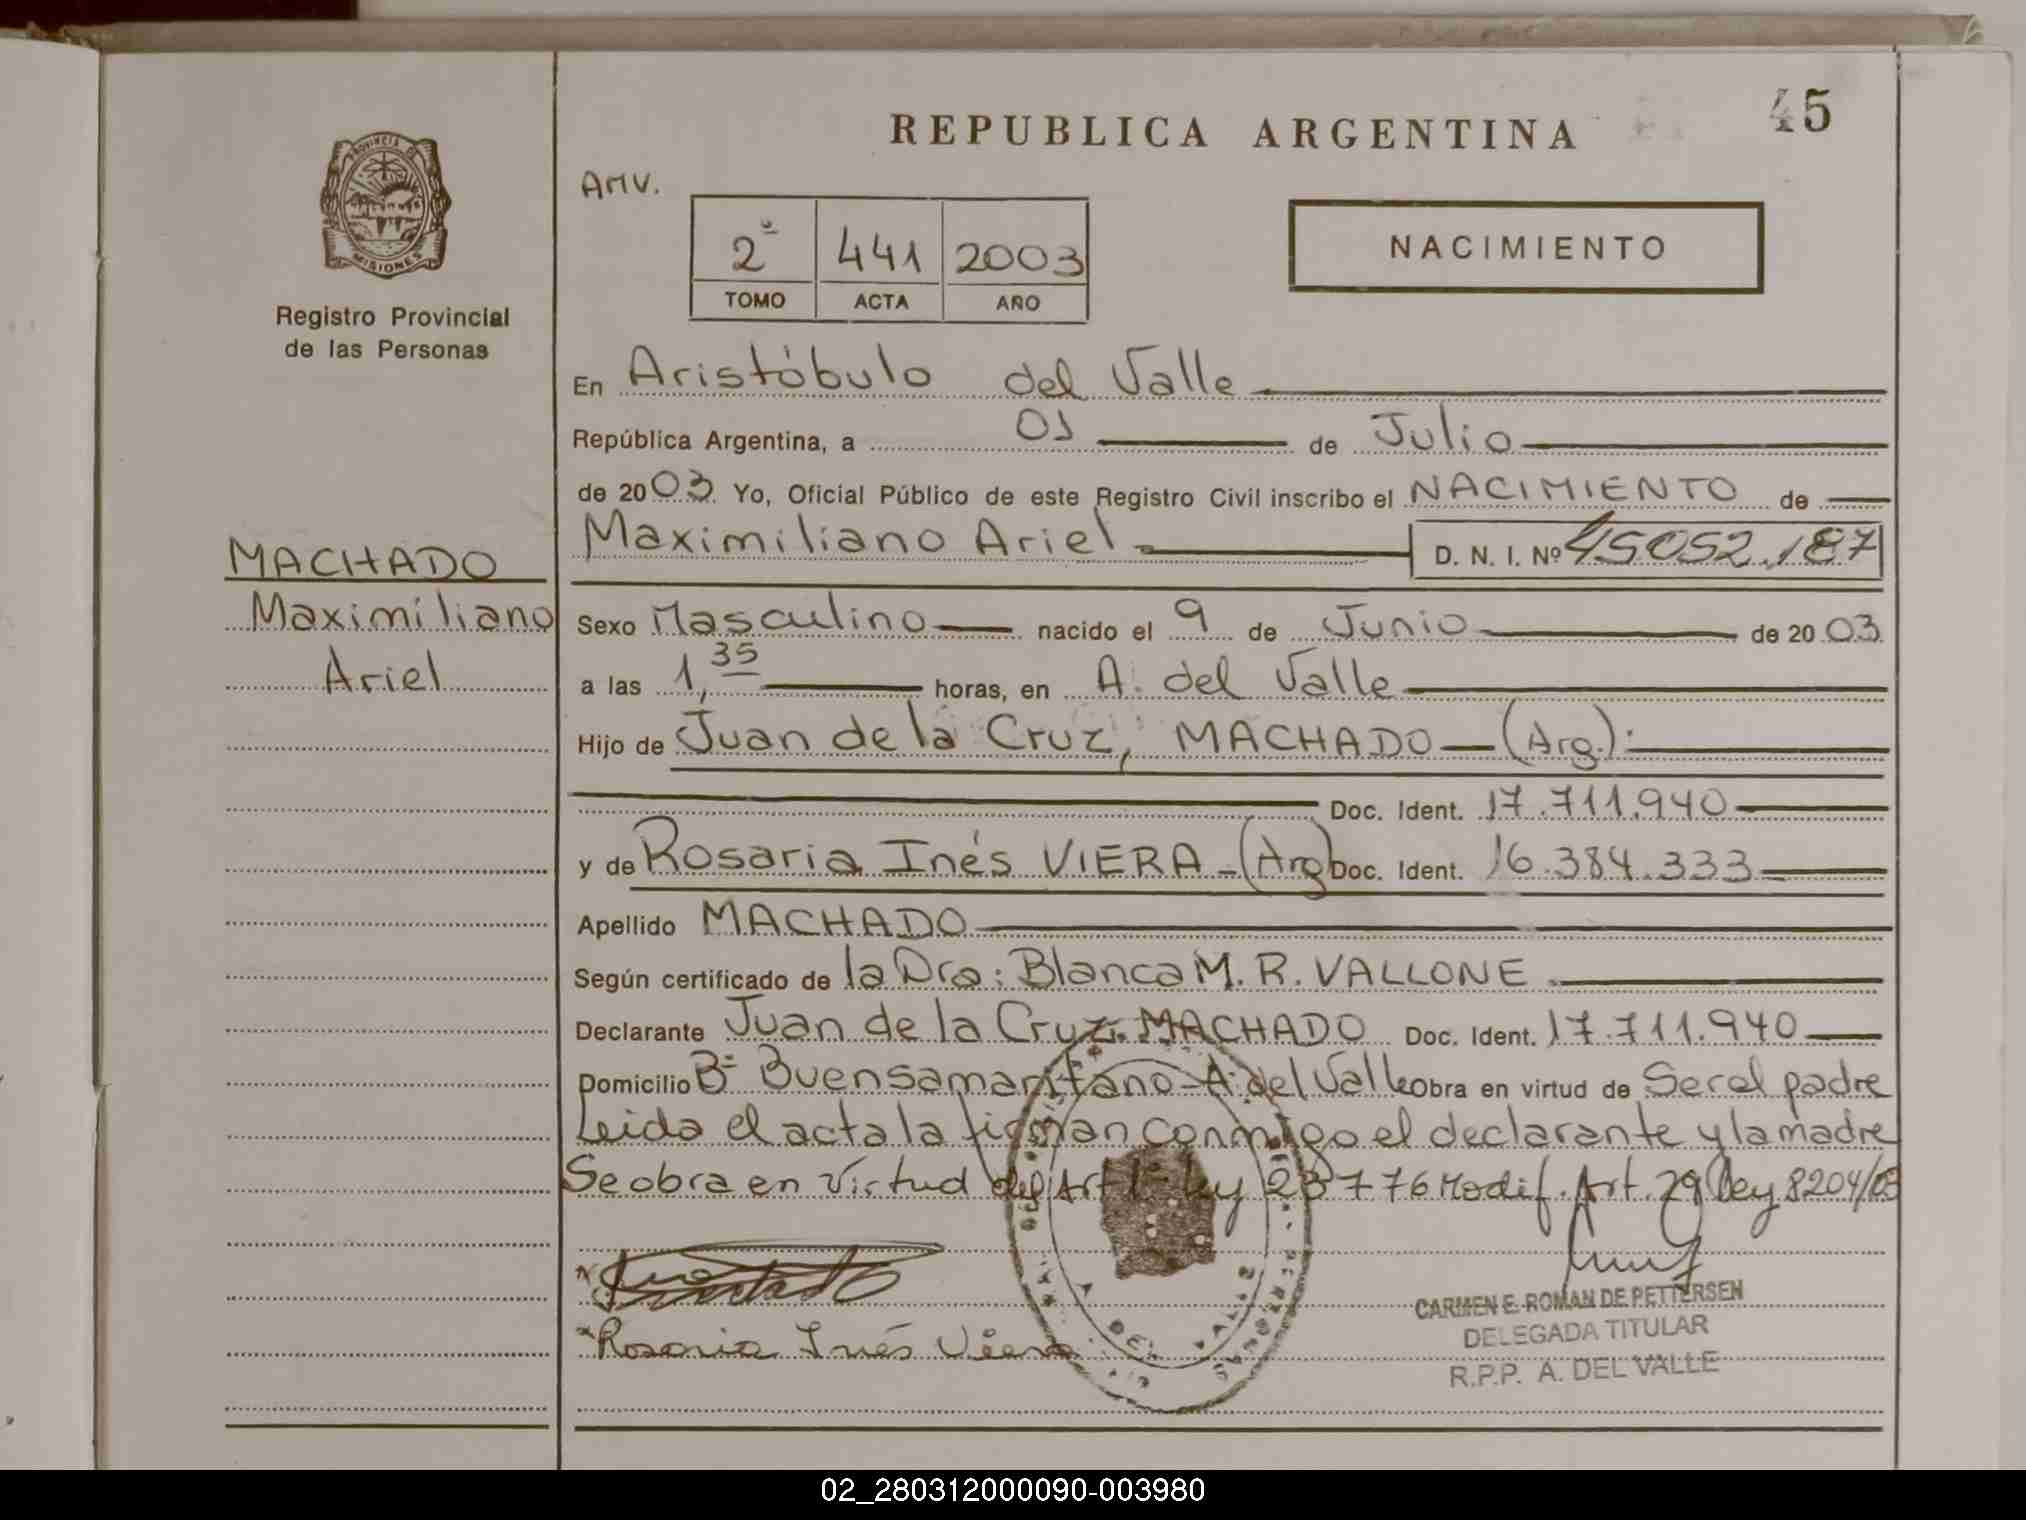 45
REPUBLICA ARGENTINA
AMV.
PROVINCIA DE
MISIONES
Registro Provincial
de las Personas
2º 441 2003
TOMO ACTA AÑO
NACIMIENTO
En Aristóbulo del Valle
República Argentina, a 01 de Julio
de 2003 Yo, Oficial Público de este Registro Civil inscribo el NACIMIENTO de
Maximiliano Ariel D. N. I. Nº 45052.187
MACHADO
Maximiliano
Ariel
Sexo Masculino nacido el 9 de Junio de 2003
a las 1,35 horas, en A. del Valle
Hijo de Juan de la Cruz, MACHADO (Arg.):
Doc. Ident. 17.711.940
y de Rosaria Inés VIERA - (Arg) Doc. Ident. 16.384.333
Apellido MACHADO
Según certificado de la Dra: Blanca M. R. VALLONE
Declarante Juan de la Cruz MACHADO Doc. Ident. 17.711.940
Domicilio Bº Buensamaritano - A. del Valle obra en virtud de Ser el padre
Leida el acta la firman conmigo el declarante y la madre
Se obra en Virtud del Art 1º Ley 23776 Modif. Art. 29 Ley 8204/63
Rosaria Inés Viera
DEL VALLE
CARMEN E. ROMAN DE PETTERSEN
DELEGADA TITULAR
R.P.P. A. DEL VALLE
02_280312000090-003980